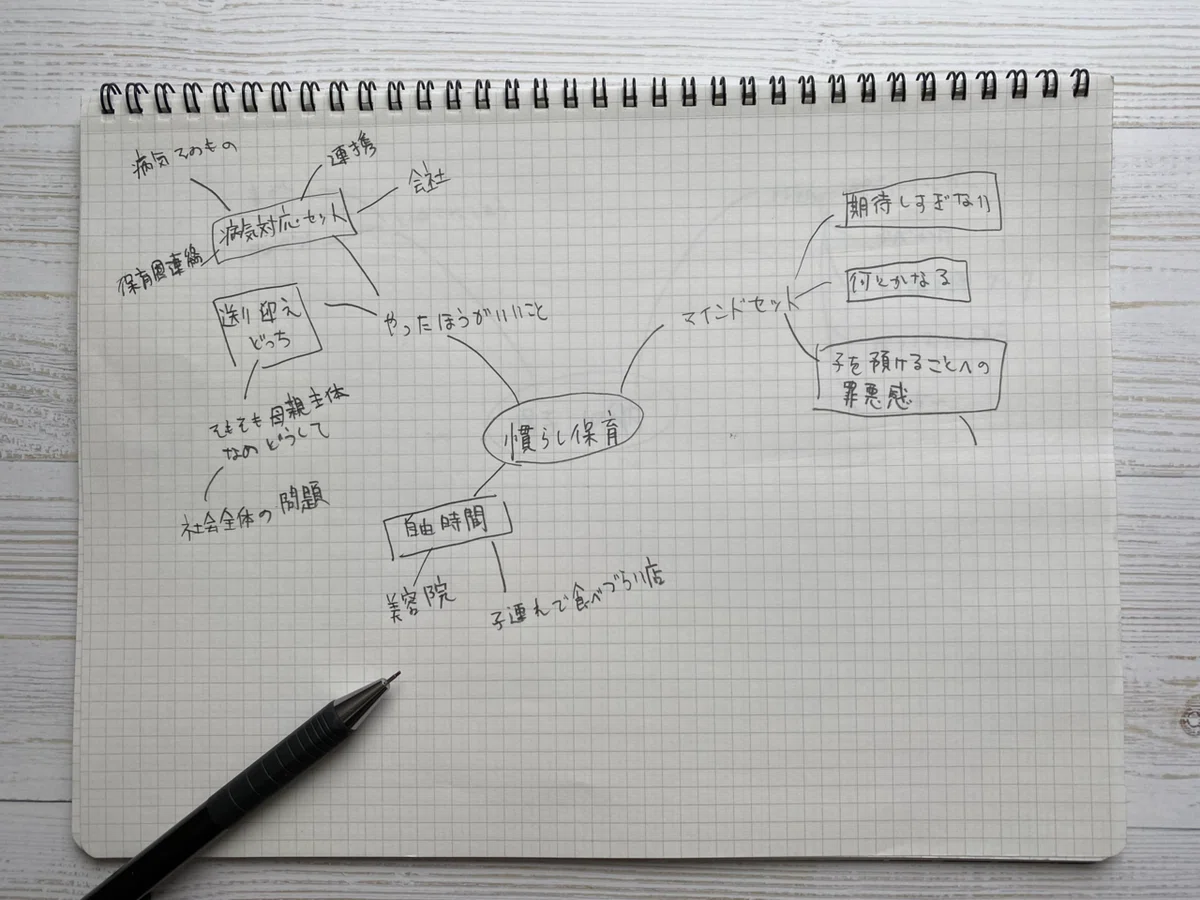 病気そのもの
連携
会社
病気対応セット
保育園連絡
送り迎え
どっち
やったほうがいいこと
そもそも母親主体
なの どうして
社会全体の問題
慣らし保育
マインドセット
期待しすぎない
何とかなる
子を預けることへの
罪悪感
自由時間
美容院
子連れで食べづらい店